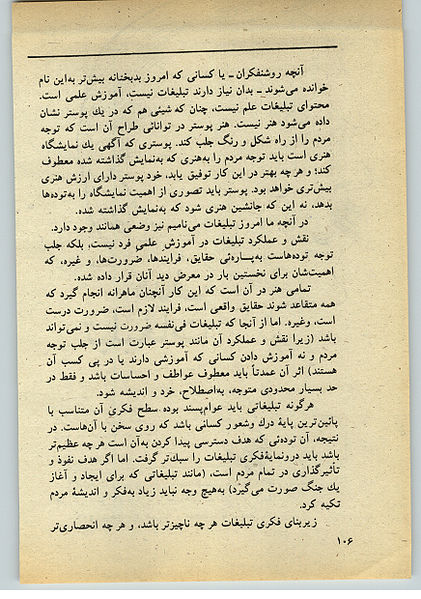 آنچه روشنفکران ـ یا کسانی که امروز بدبختانه بیش‌تر به‌این نام
خوانده می‌شوند ـ بدان نیاز دارند تبلیغات نیست، آموزش علمی است.
محتوای تبلیغات علم نیست، چنان که شیئی هم که در یك پوستر نشان
داده می‌شود هنر نیست. هنر پوستر در توانائی طراح آن است که توجه
مردم را از راه شکل و رنگ جلب کند. پوستری که آگهی یك نمایشگاه
هنری است باید توجه مردم را به‌هنری که به‌نمایش گذاشته شده معطوف
کند؛ و هر چه بهتر در این کار توفیق یابد، خود پوستر دارای ارزش هنری
بیش‌تری خواهد بود. پوستر باید تصوری از اهمیت نمایشگاه را به‌توده‌ها
بدهد، نه این که جانشین هنری شود که به‌نمایش گذاشته شده.
در آنچه ما امروز تبلیغات می‌نامیم نیز وضعی همانند وجود دارد.
نقش و عملکرد تبلیغات در آموزش علمی فرد نیست، بلکه جلب
توجه توده‌هاست به‌پـــاره‌ئی حقایق، فرایندها، ضرورت‌ها، و غیره، که
اهمیت‌شان برای نخستین بار در معرض دید آنان قرار داده شده.
تمامی هنر در آن است که این کار آنچنان ماهرانه انجام گیرد که
همه متقاعد شوند حقایق واقعی است، فرایند لازم است، ضرورت درست
است، وغیره. اما از آنجا که تبلیغات فی‌نفسه ضرورت نیست و نمی‌تواند
باشد (زیرا نقش و عملکرد آن مانند پوستر عبارت است از جلب توجه
مردم و نه آموزش دادن کسانی که آموزشی دارند یا در پی کسب آن
هستند) اثر آن عمدتاً باید معطوف عواطف و احساسات باشد و فقط در
حد بسیار محدودی متوجه، به‌اصطلاح، خرد و اندیشه شود.
هرگونه تبلیغاتی باید عوام‌پسند بوده سطح فکری آن متناسب با
پائین‌ترین پایهٔ درك وشعور کسانی باشد که روی سخن با آن‌هاست. در
نتیجه، آن توده‌ئی که هدف دسترسی پیدا کردن به‌آن است هر چه عظیم‌تر
باشد باید درونمایهٔ‌فکری تبلیغات را سبك‌تر گرفت. اما اگر هدف نفوذ و
تأثیرگذاری در تمام مردم است، (مانند تبلیغاتی که برای ایجاد و آغاز
یك جنگ صورت می‌گیرد) به‌هیچ وجه نباید زیاد به‌فکر و اندیشهٔ مردم
تکیه کرد.
زیربنای فکری تبلیغات هر چه ناچیزتر باشد، و هر چه انحصاری‌تر
۱۰۶